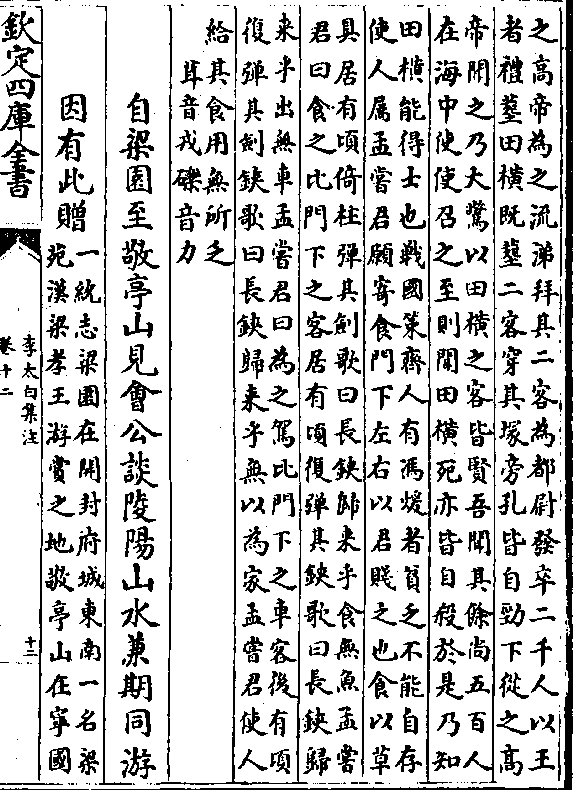 之高帝為之流涕拜其二客為都尉發卒二千人以王
者禮葬田橫既葬二客穿其塚旁孔皆自勁下從之高
帝聞之乃大驚以田橫之客皆賢吾聞其餘尚五百人
在海中使使召之至則聞田橫死亦皆自殺於是乃知
田橫能得士也戰國策齊人有馮煖者貧乏不能自存
使人屬孟嘗君願寄食門下左右以君賤之也食以草
具居有頃倚柱彈其劍歌曰長鋏歸来乎食無魚孟嘗
君曰食之比門下之客居有頃復彈其鋏歌曰長鋏歸
来乎出無車孟嘗君曰為之駕比門下之車客後有頃
復彈其劍鋏歌曰長鋏歸来乎無以為家孟嘗君使人
給其食用無所乏
耳音戎礫音力
自梁園至敬亭山見會公談陵陽山水兼期同游
因有此贈
一統志梁園在開封府城東南一名梁
苑漢梁孝王游賞之地敬亭山在寧國
欽定四庫全書
李太白集注
卷十二
十二